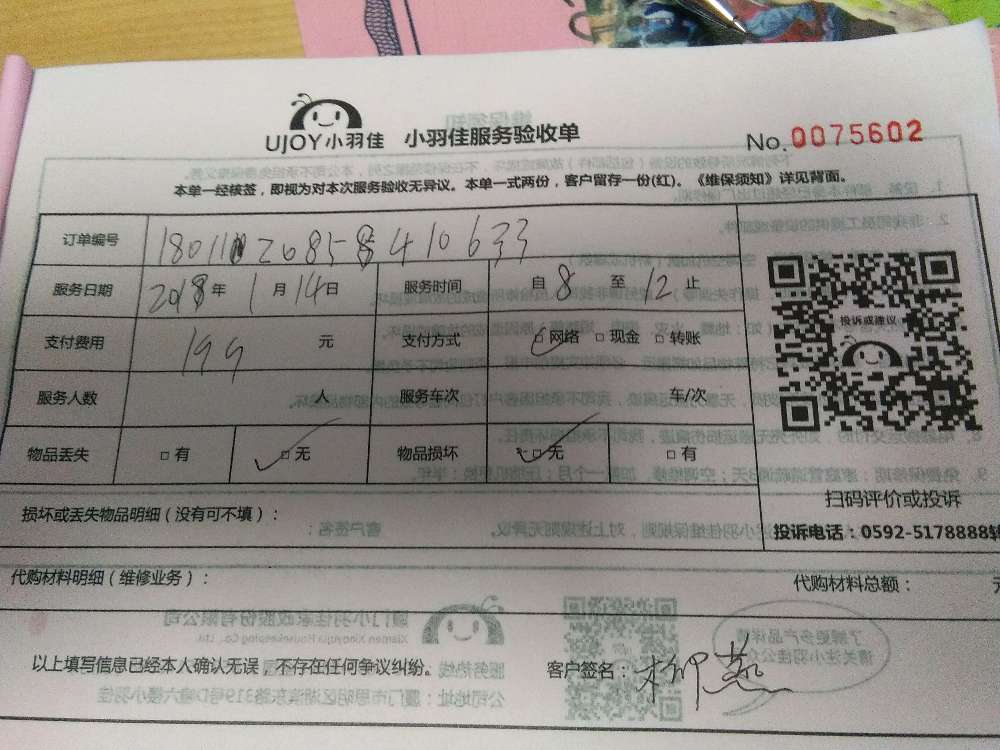 UJOY小羽佳 小羽佳服务验收单 No.0075602
本单一经核签，即视为对本次服务验收无异议。本单一式两份，客户留存一份(红)。《维保须知》详见背面。
订单编号
服务日期 2018年 1月 14日 服务时间 自 8 至 12 止
支付费用 199 元 支付方式 □网络 □现金 □转账
服务人数 人 服务车次 车/次
物品丢失 □有 □无 物品损坏 □无 □有
投诉或建议
扫码评价或投诉
投诉电话：0592-5178888转
损坏或丢失物品明细（没有可不填）：
代购材料明细（维修业务）： 代购材料总额： 元
以上填写信息已经本人确认无误，不存在任何争议纠纷。 客户签名：柳燕